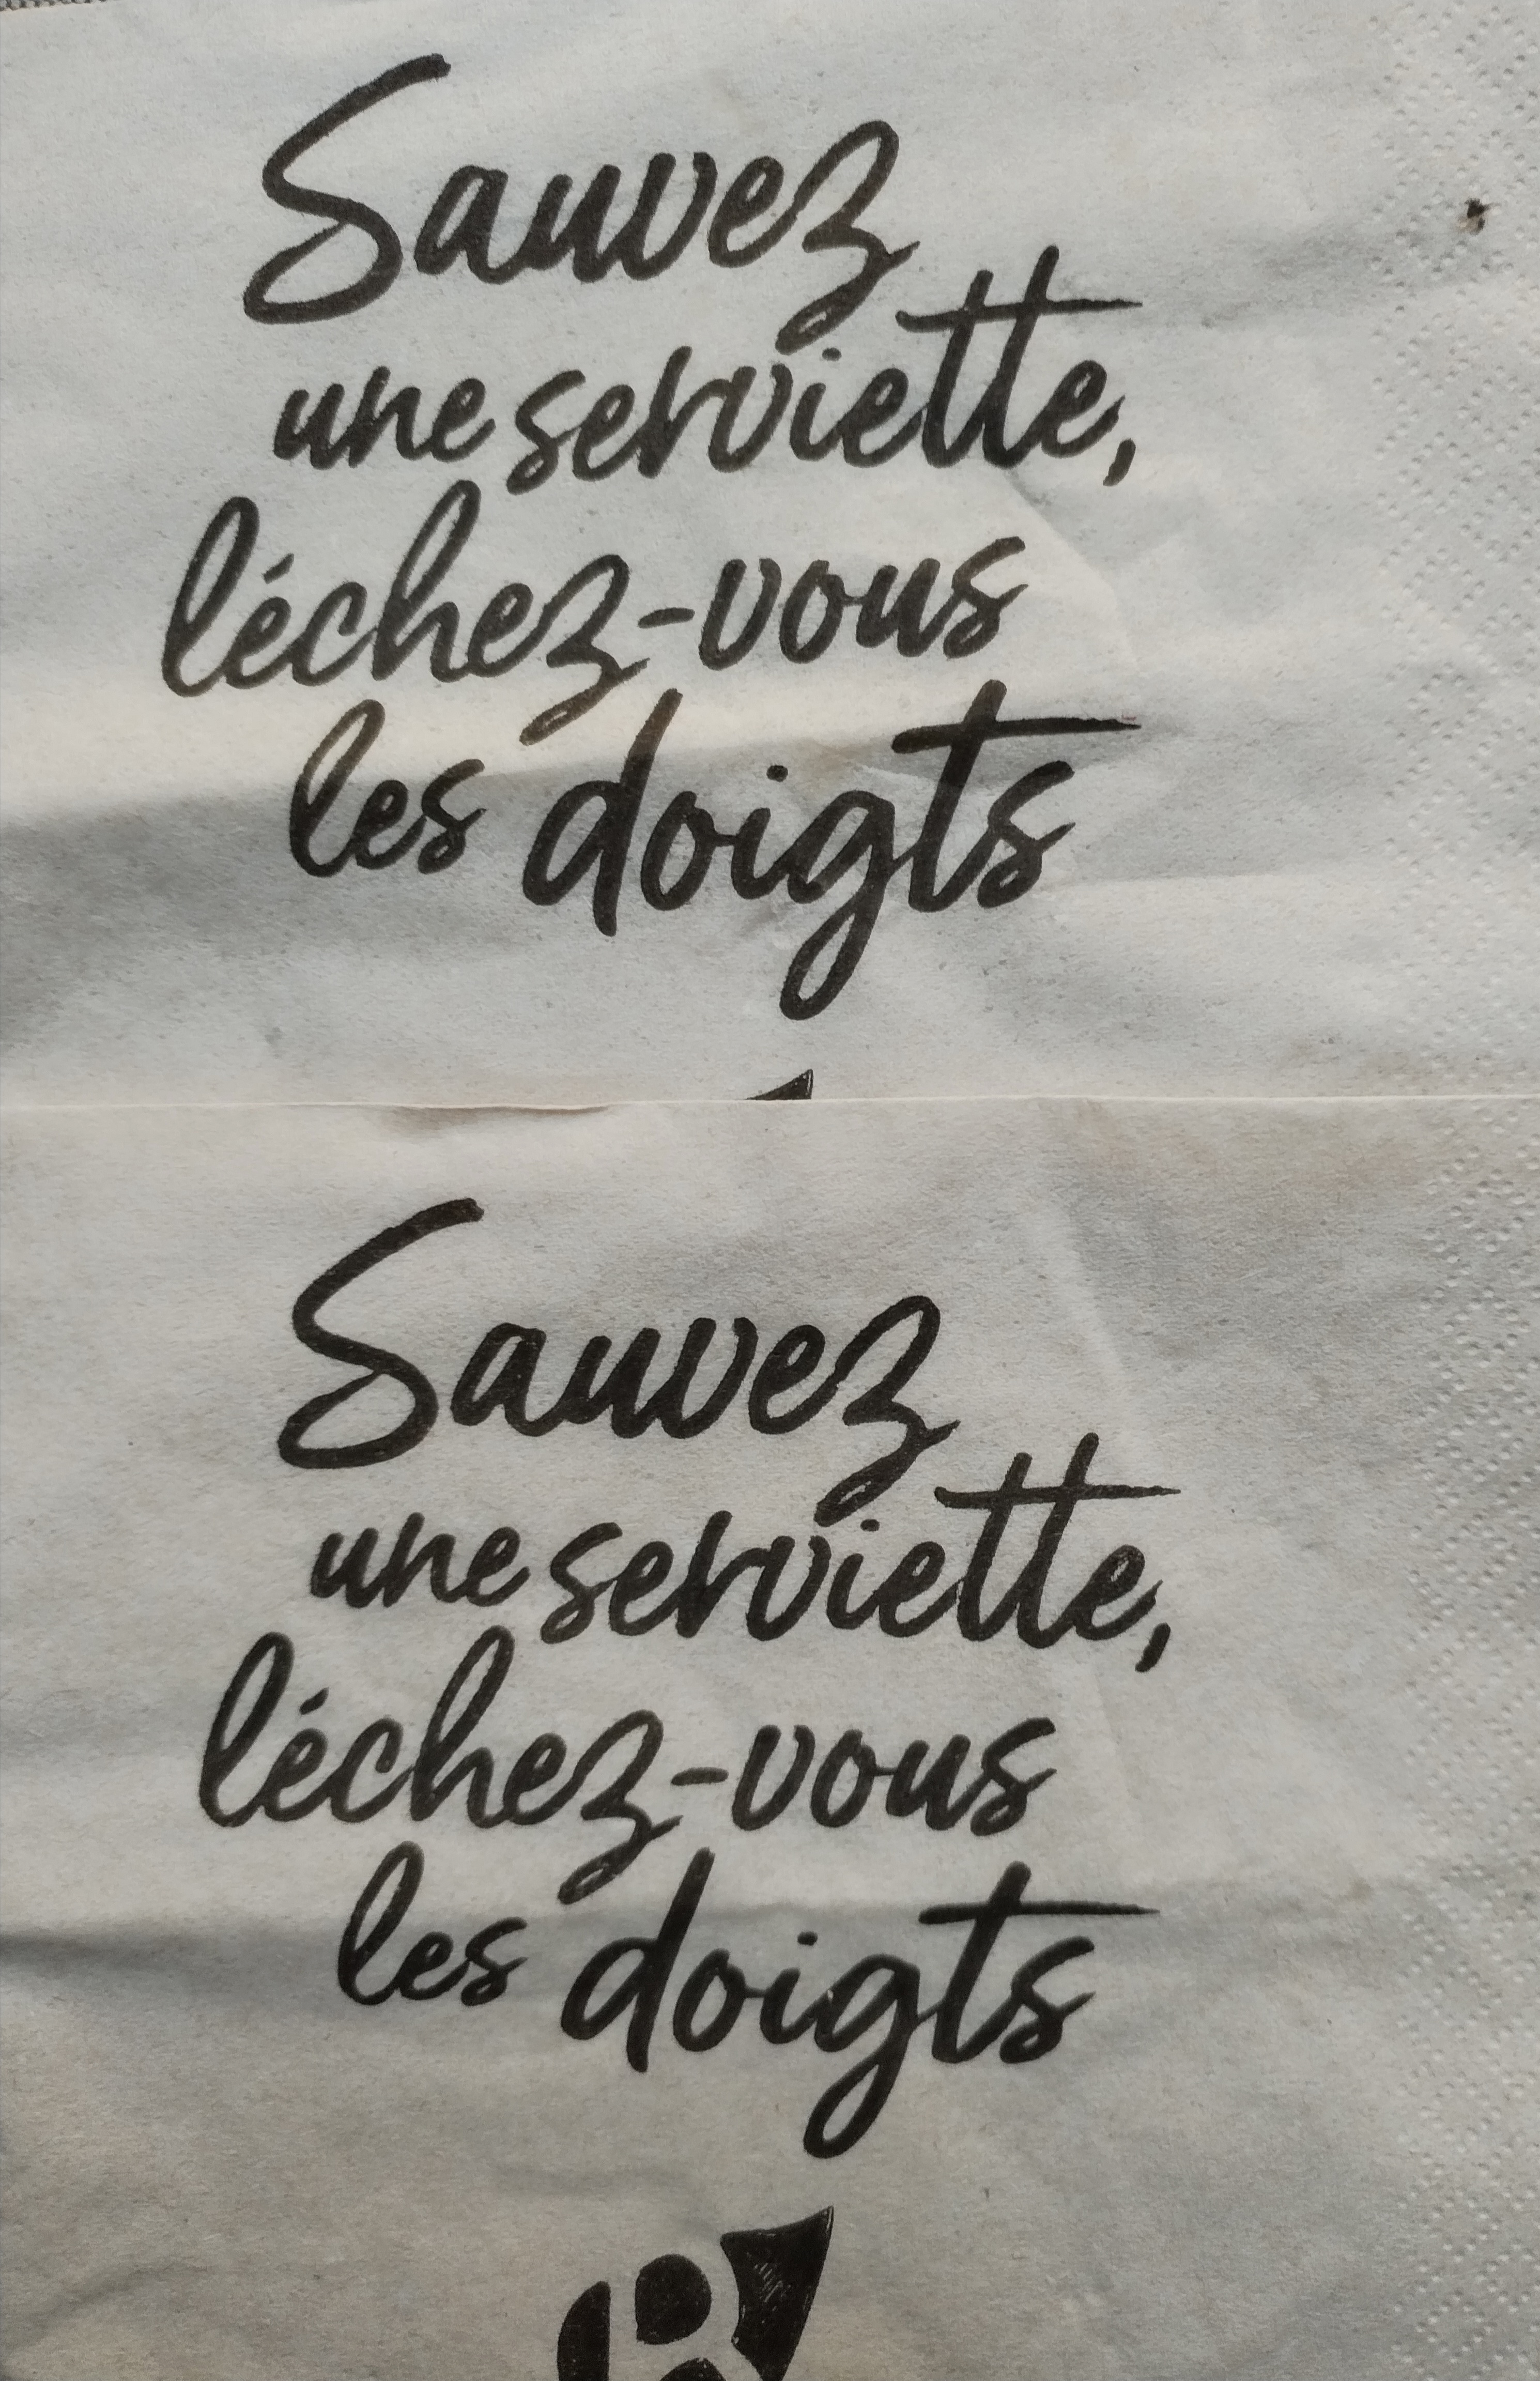 Sauvez
une serviette,
léchez-vous
les doigts
Sauvez
une serviette,
léchez-vous
les doigts